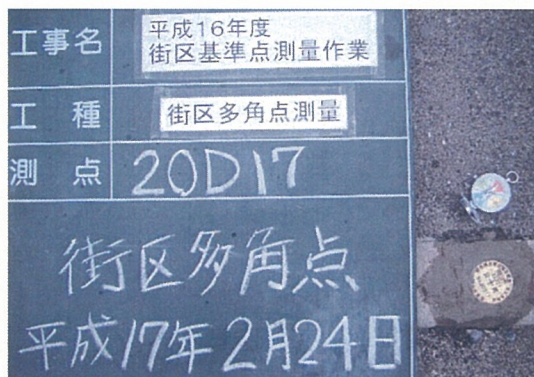 工事名
平成16年度
街区基準点測量作業
工種
街区多角点測量
測点
20D17
街区多角点
平成17年2月24日